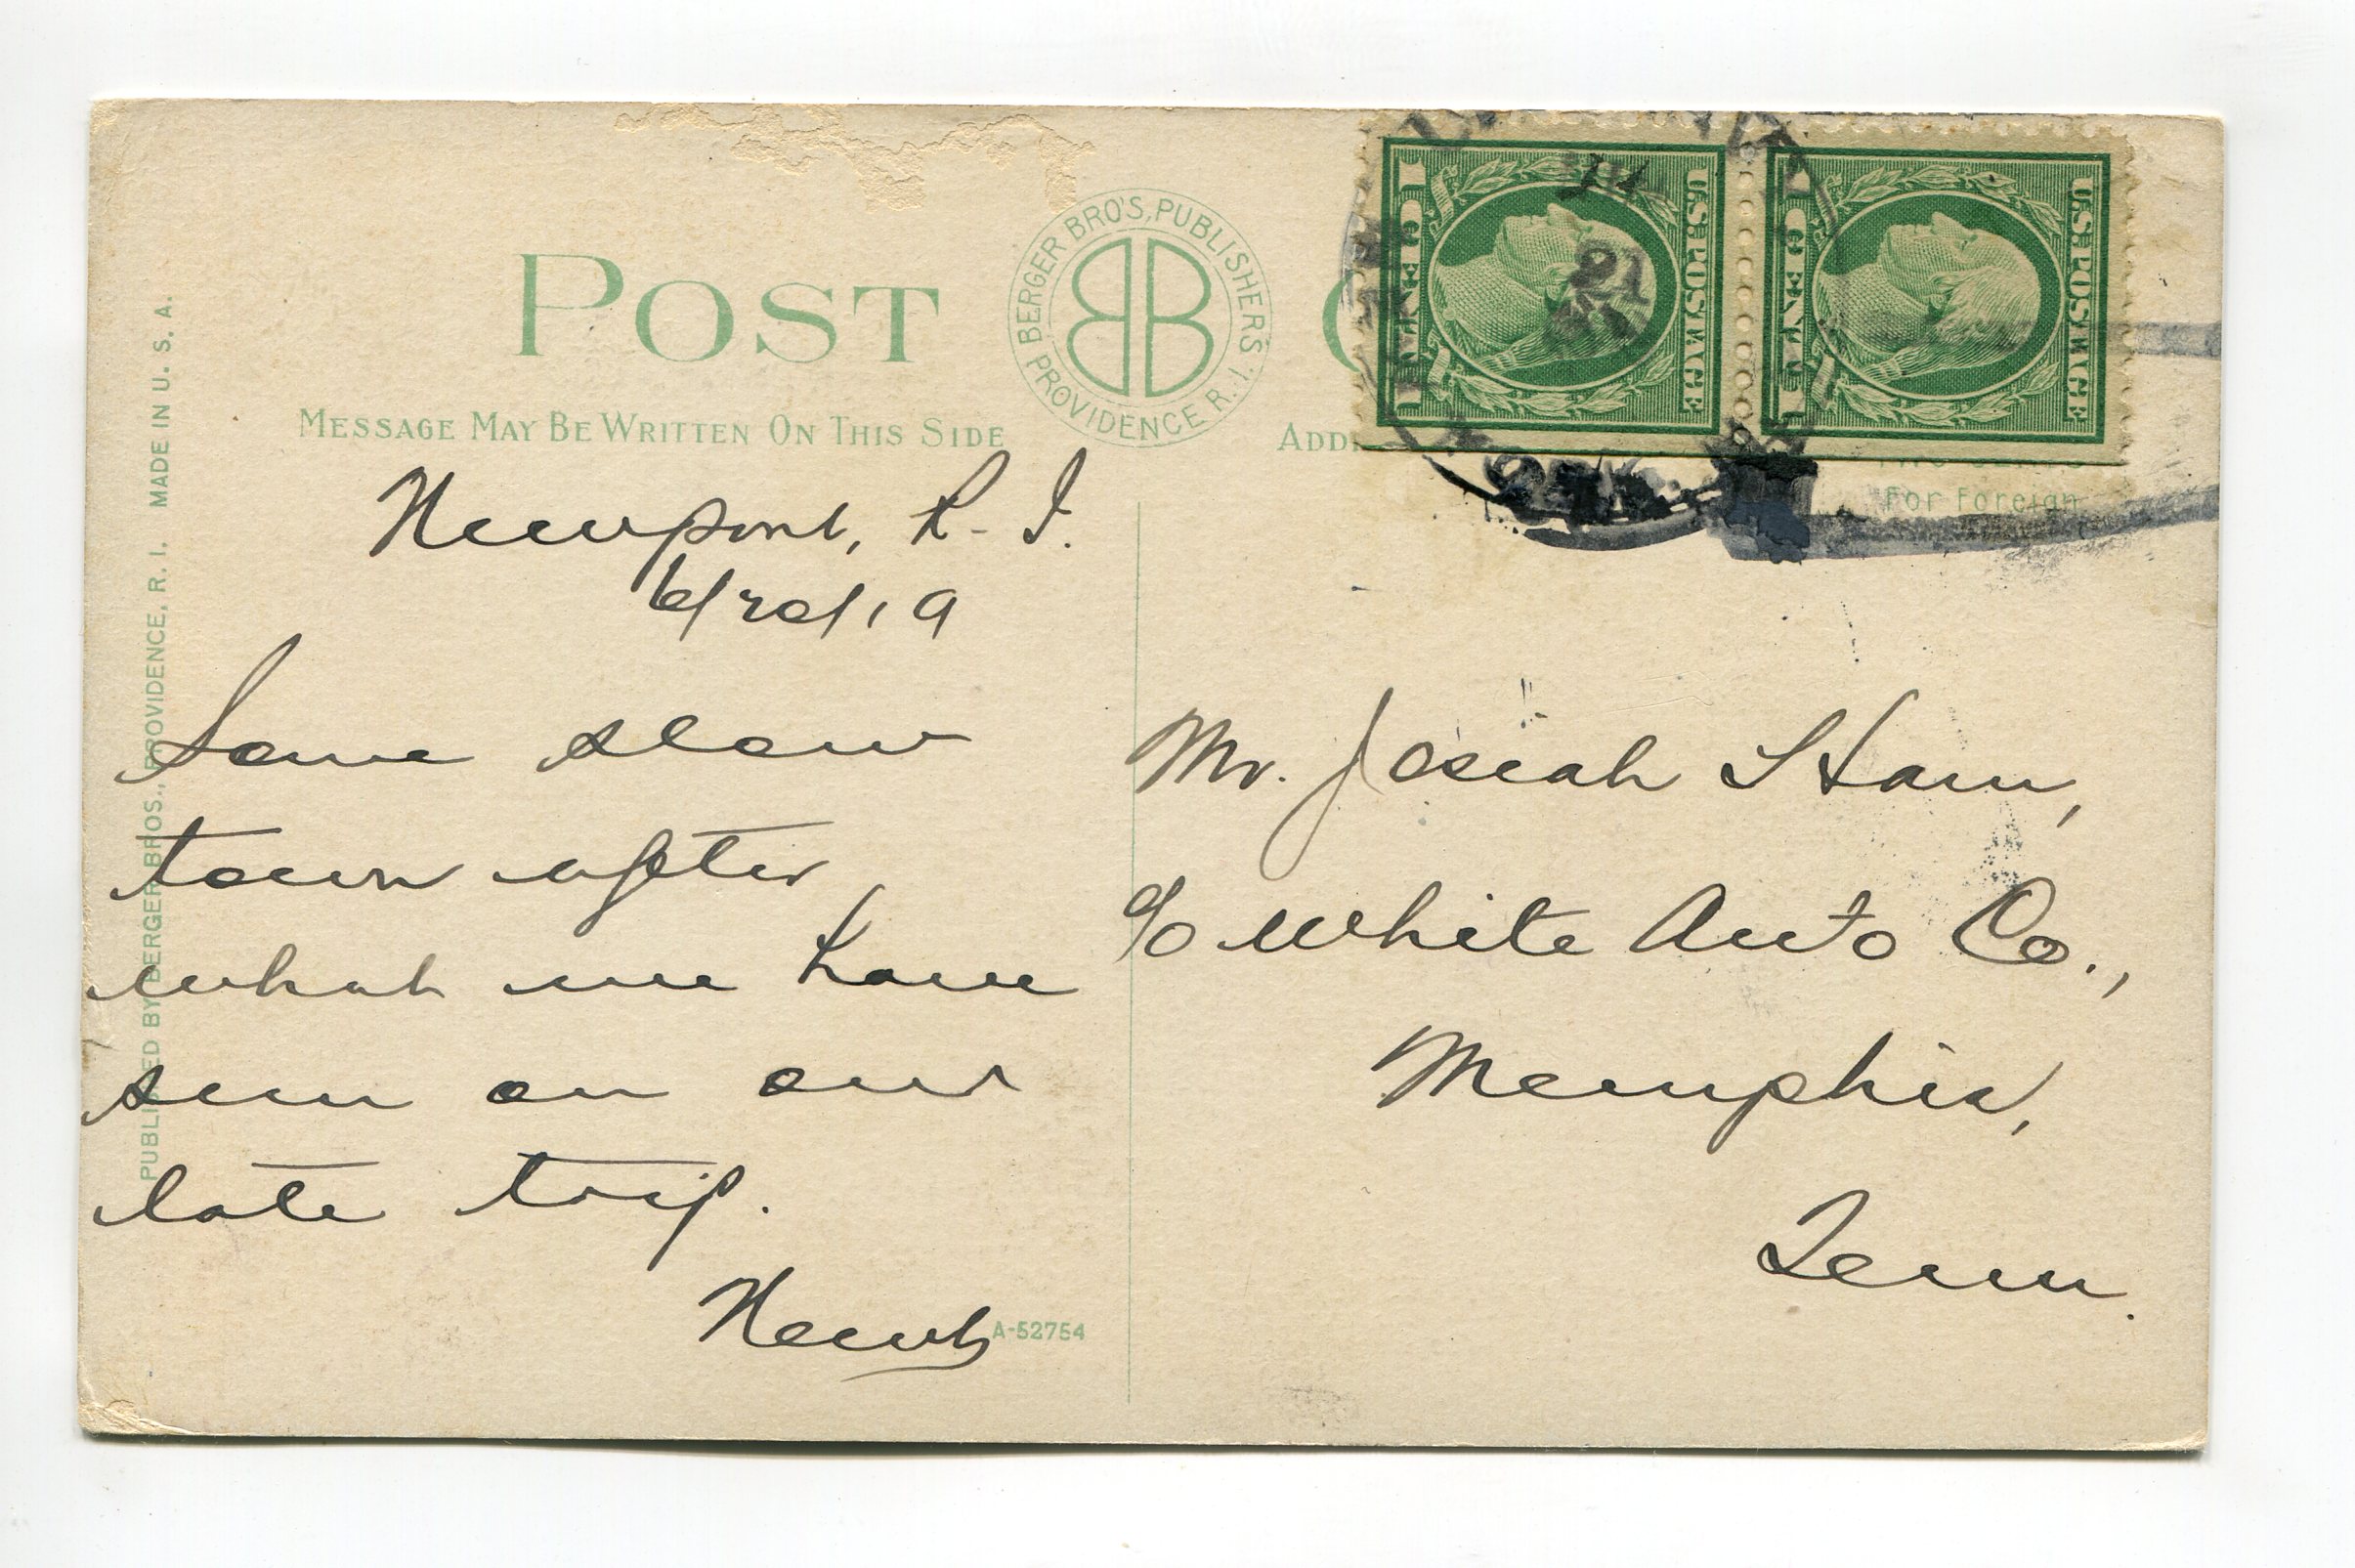 POST
BERGER BRO'S, PUBLISHERS
PROVIDENCE R. I.
BB
MESSAGE MAY BE WRITTEN ON THIS SIDE
ADD
U.S. POSTAGE
1 CENT 1
U.S. POSTAGE
1 CENT 1
21
For Foreign
PUBLISHED BY BERGER BROS., PROVIDENCE, R. I. MADE IN U. S. A.
Newport, R. I.
6/20/19
Some slow
town after
what we have
seen on our
late trip.
A-52754
Mr. Josiah Ham,
c/o White Auto Co.,
Memphis,
Tenn.